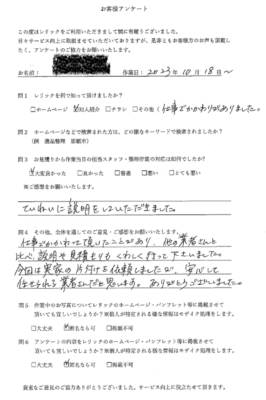 お客様アンケート
この度はレリックをご利用いただきまして誠に有難うございました。
日々サービス向上に取組ませていただいておりますが、是非ともお客様方のお声も頂戴し
たく、アンケートのご協力をお願いします。
お名前：
作業日：2023年10月18日～
問1 レリックを何で知って頂けましたか？
□ホームページ ☑知人紹介 □チラシ □その他（仕事でかかわりがありました。）
問2 ホームページなどで検索された方は、どの様なキーワードで検索されましたか？
（例 遺品整理 即紙市）
問3 お見積りから作業当日の担当スタッフ・整理作業の対応は如何でしたか？
☑大変良かった □良かった □普通 □悪い □とても悪い
※ご感想をお願いいたします。
ていねいに説明をしていただきました。
問4 その他、全体を通してのご意見・ご感想をお願いいたします。
仕事でかかわって頂いたことがあり、他の業者さんと
比べ、説明や見積もりもくわしく行って下さいました。
今回は実家の片付けを依頼しましたが、安心して
任せられる業者さんだと思います。ありがとうございました。
問5 作業中のお写真についてレリックのホームページ・パンフレット等に掲載させて
頂いても宜しいでしょうか？※個人が特定される様な情報はモザイク処理をします。
□大丈夫 ☑匿名なら可 □掲載不可
問6 アンケートの内容をレリックのホームページ・パンフレット等に掲載させて
頂いても宜しいでしょうか？※個人が特定される様な情報はモザイク処理をします。
□大丈夫 ☑匿名なら可 □掲載不可
貴重なご意見のご協力ありがとうございました。サービス向上に役立たせて頂きます。